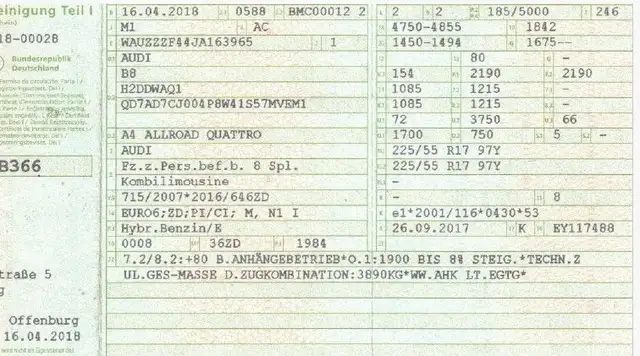 einigung Teil I
18-00028
Bundesrepublik
Deutschland
B366
traße 5
g
Offenburg
16.04.2018
16.04.2018 0588 BMC00012 2
M1 AC
WAUZZZF44JA163965 1
AUDI
B8
H2DDWAQ1
QD7AD7CJ004P8W41S57MVEM1
A4 ALLROAD QUATTRO
AUDI
Fz.z.Pers.bef.b. 8 Spl.
Kombilimousine
715/2007*2016/646ZD
EURO6;ZD;PI/CI; M, N1 I
Hybr.Benzin/E
0008 36ZD 1984
2 2 185/5000 246
4750-4855 1842
1450-1494 1675--
- 80 -
154 2190 2190
1085 1215 -
1085 1215 -
72 3750 66
1700 750 5 -
225/55 R17 97Y
225/55 R17 97Y
-
- 8
e1*2001/116*0430*53
26.09.2017 K EY117488
7.2/8.2:+80 B.ANHÄNGEBETRIEB*O.1:1900 BIS 8% STEIG.*TECHN.Z
UL.GES-MASSE D.ZUGKOMBINATION:3890KG*WW.AHK LT.EGTG*